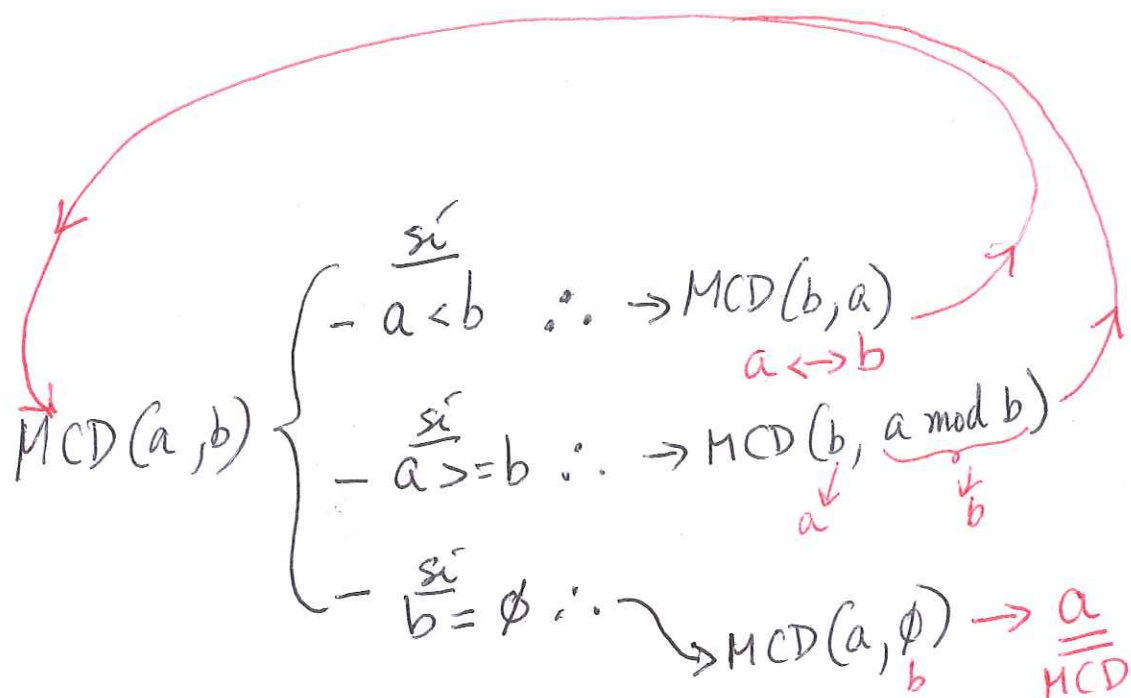 sí
- a < b ∴ → MCD(b, a)
a ↔ b
MCD(a, b)
sí
- a >= b ∴ → MCD(b, a mod b)
a b
sí
- b = ϕ ∴ → MCD(a, ϕ) → a
b MCD